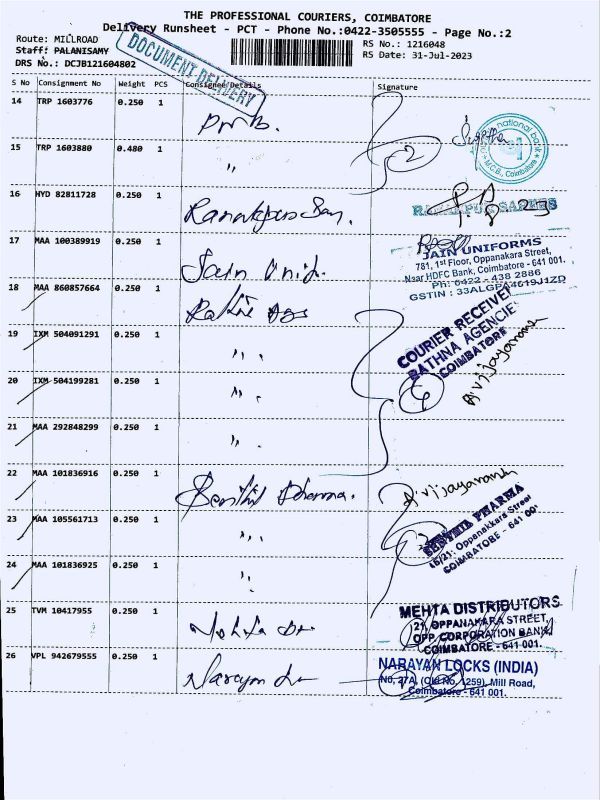 THE PROFESSIONAL COURIERS, COIMBATORE
Delivery Runsheet - PCT - Phone No.:0422-3505555 - Page No.:2
Route: MILLROAD
RS No.: 1216048
Staff: PALANISAMY
RS Date: 31-Jul-2023
DRS No.: DCJB121604802
DOCUMENT DELIVERY
S No Consignment No Weight PCS Consignee Details Signature
14 TRP 1603776 0.250 1
15 TRP 1603880 0.480 1 "
national bank
M.C.B., Coimbatore
16 HYD 82811728 0.250 1
17 MAA 100389919 0.250 1 Jain Unif.
JAIN UNIFORMS
781, 1st Floor, Oppanakara Street,
Near HDFC Bank, Coimbatore - 641 001.
Ph: 0422 - 438 2886
18 MAA 860857664 0.250 1
COURIER RECEIVED
RATHNA AGENCIE
COIMBATORE
19 IXM 504091291 0.250 1 "
20 IXM 504199281 0.250 1 "
A.vijayanand
21 MAA 292848299 0.250 1 "
22 MAA 101836916 0.250 1 Senthil Pharma.
A.vijayanand
SENTHIL PHARMA
Oppanakkara Street
COIMBATORE - 641 001
23 MAA 105561713 0.250 1 "
24 MAA 101836925 0.250 1 "
25 TVM 10417955 0.250 1
MEHTA DISTRIBUTORS
21, OPPANAKARA STREET,
OPP. CORPORATION BANK,
COIMBATORE - 641 001.
26 VPL 942679555 0.250 1 Narayan
NARAYAN LOCKS (INDIA)
No, 27A, (Old No. 1259), Mill Road,
Coimbatore - 641 001.